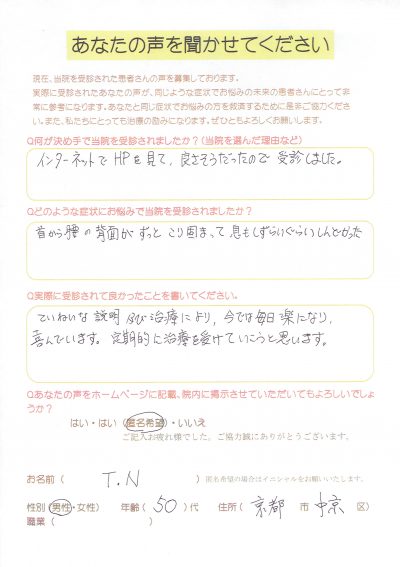 あなたの声を聞かせてください
現在、当院を受診された患者さんの声を募集しております。
実際に受診されたあなたの声が、同じような症状でお悩みの未来の患者さんにとって非
常に参考になります。あなたと同じ症状でお悩みの方を救済するために是非ご協力くださ
い。また、私たちにとっても治療の励みになります。ぜひともよろしくお願いします。
Q何が決め手で当院を受診されましたか？(当院を選んだ理由など)
インターネットで HPを見て、良さそうだったので 受診しました。
Qどのような症状にお悩みで当院を受診されましたか？
首から腰の背面が ずっと こり固まって 息もしずらいぐらいしんどかった
Q実際に受診されて良かったことを書いてください。
ていねいな 説明 及び 治療により、今では毎日 楽になり、
喜んでいます。定期的に治療を受けていこうと思います。
Qあなたの声をホームページに記載、院内に掲示させていただいてもよろしいでしょ
うか？
はい・はい（匿名希望）・いいえ
ご記入お疲れ様でした。ご協力誠にありがとうございます。
お名前（ T.N ）匿名希望の場合はイニシャルをお願いいたします。
性別（男性・女性） 年齢（50）代 住所（京都 市 中京 区）
職業（ ）